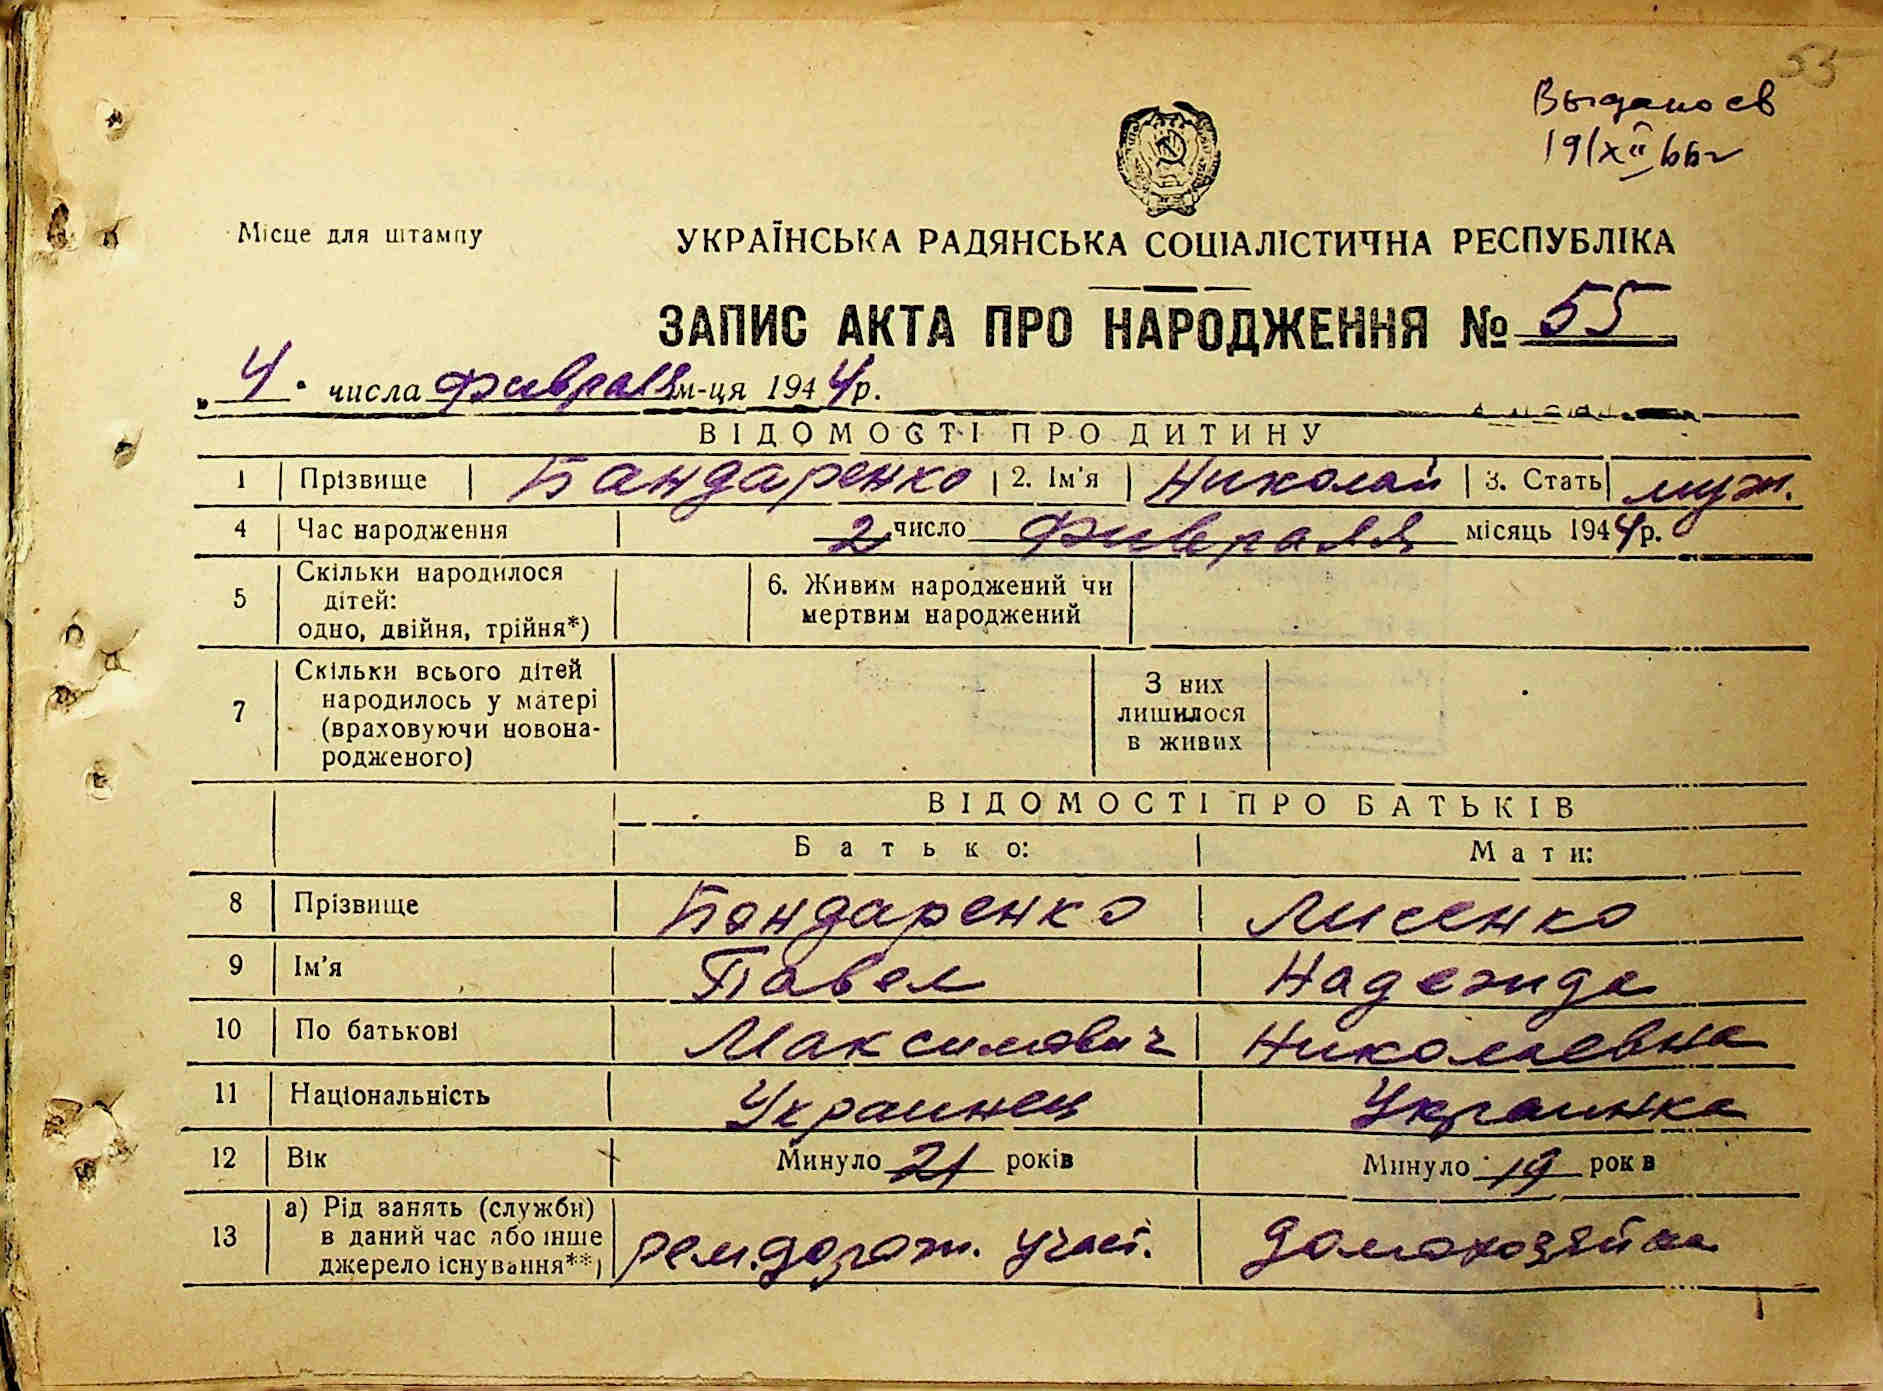 55
Выдано св
19/XII 66 г
Місце для штампу
УКРАЇНСЬКА РАДЯНСЬКА СОЦІАЛІСТИЧНА РЕСПУБЛІКА
ЗАПИС АКТА ПРО НАРОДЖЕННЯ № 55
„4" числа Фивраля м-ця 1944 р.
ВІДОМОСТІ ПРО ДИТИНУ
1 Прізвище Бандаренко 2. Ім'я Николай 3. Стать муж.
4 Час народження 2 число Фивраля місяць 1944 р.
5 Скільки народилося дітей: одно, двійня, трійня*) 6. Живим народжений чи мертвим народжений
7 Скільки всього дітей народилось у матері (враховуючи новонародженого) З них лишилося в живих
ВІДОМОСТІ ПРО БАТЬКІВ
Батько: Мати:
8 Прізвище Бондаренко Лисенко
9 Ім'я Павел Надежда
10 По батькові Максимович Николаевна
11 Національність Украинец Украинка
12 Вік Минуло 21 років Минуло 19 років
13 а) Рід занять (служби) в даний час або інше джерело існування**) рем.дорож. участ. домохозяйка